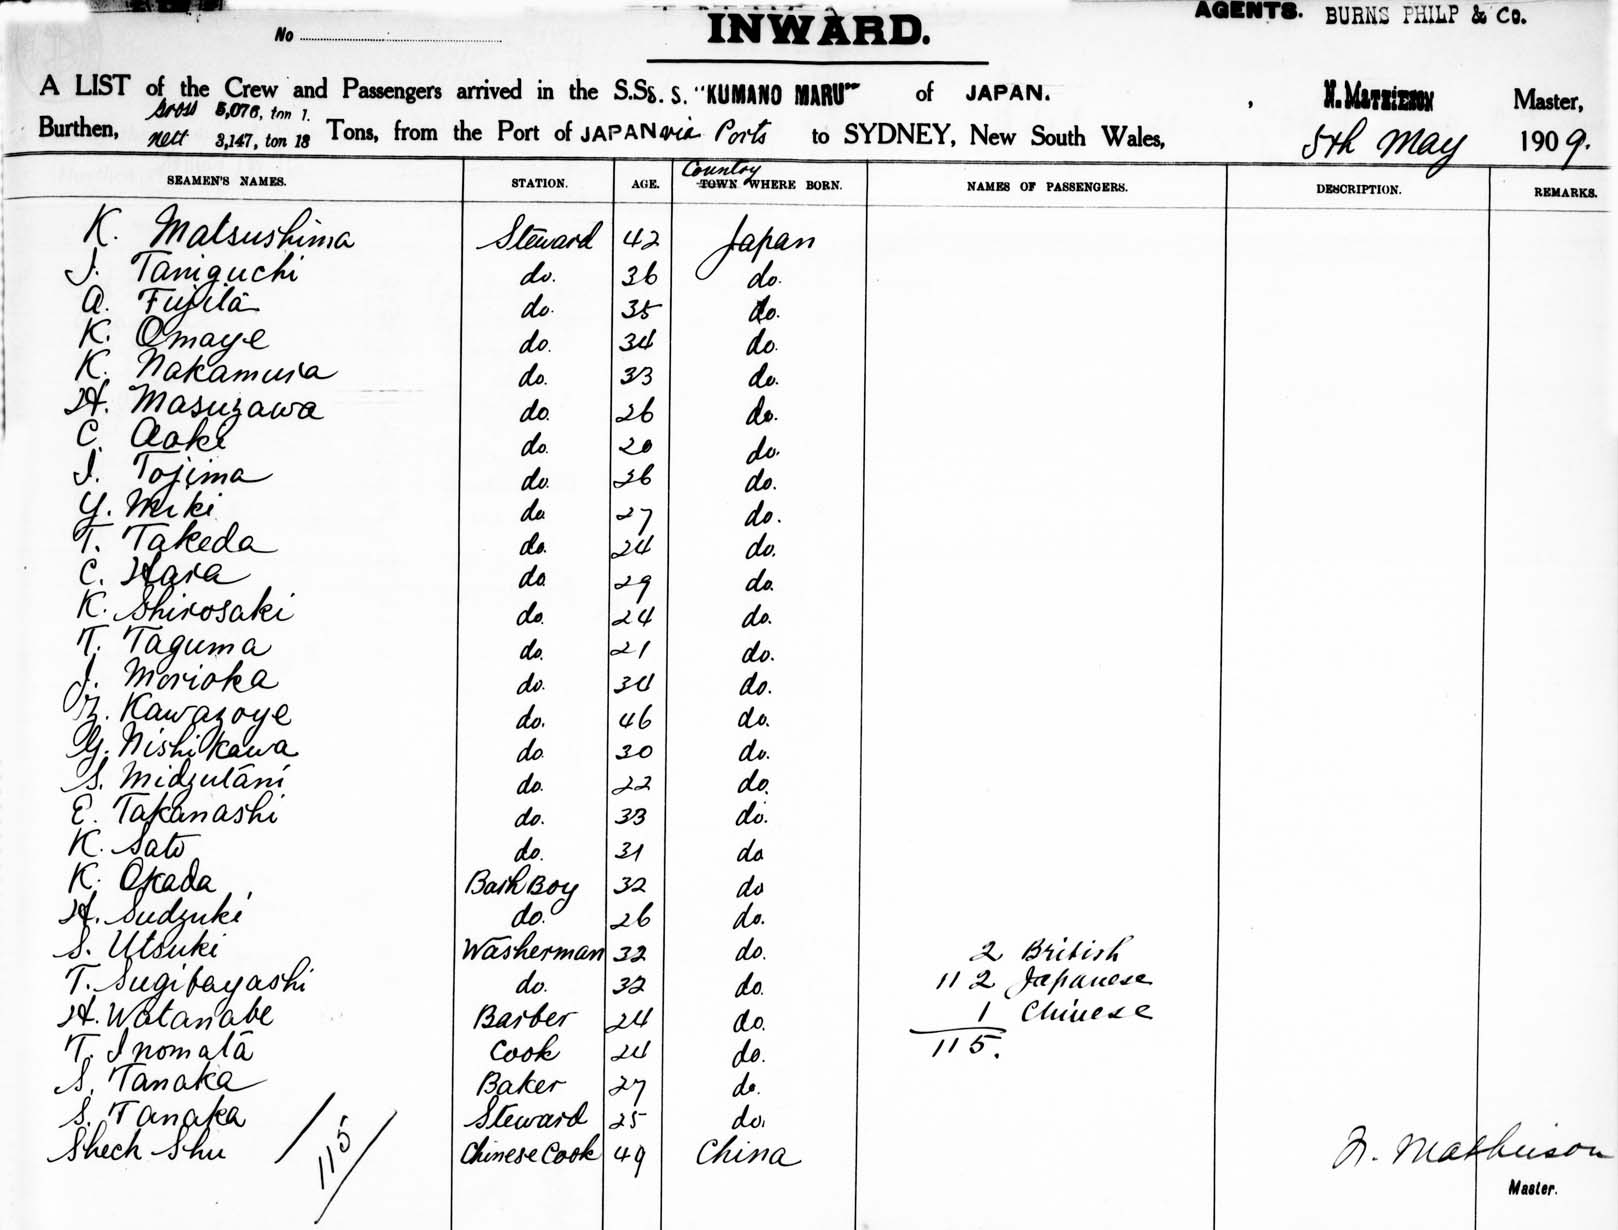 AGENTS. BURNS PHILP & Co.
No
INWARD.
A LIST of the Crew and Passengers arrived in the S.S. S. S. "KUMANO MARU" of JAPAN. , N. MATHIESON Master,
Burthen, Gross 5,076, ton 1. Nett 3,147, ton 18 Tons, from the Port of JAPAN via Ports to SYDNEY, New South Wales, 5th May 1909.
SEAMEN'S NAMES. STATION. AGE. Country TOWN WHERE BORN. NAMES OF PASSENGERS. DESCRIPTION. REMARKS.
K. Matsushima Steward 42 Japan
J. Taniguchi do. 36 do.
A. Fujita do. 35 do.
K. Omaye do. 34 do.
K. Nakamura do. 33 do.
H. Masuzawa do. 26 do.
C. Aoki do. 20 do.
I. Tojima do. 26 do.
Y. Miki do 27 do.
T. Takeda do. 24 do.
C. Hara do 29 do.
K. Shirosaki do. 24 do.
T. Taguma do. 21 do.
J. Morioka do. 34 do.
Kawazoye do. 46 do.
Y. Nishikawa do. 30 do.
S. Midzutani do. 22 do.
E. Takanashi do. 33 do.
K. Sato do. 31 do
K. Okada Bath Boy 32 do
H. Sudzuki do. 26 do.
S. Utsuki Washerman 32 do. 2 British
T. Sugibayashi do. 32 do. 112 Japanese
H. Watanabe Barber 24 do. 1 Chinese
T. Inomata Cook 24 do. 115.
S. Tanaka Baker 27 do.
S. Tanaka Steward 25 do.
Shech Shu /115/ Chinese Cook 49 China N. Mathieson
Master.